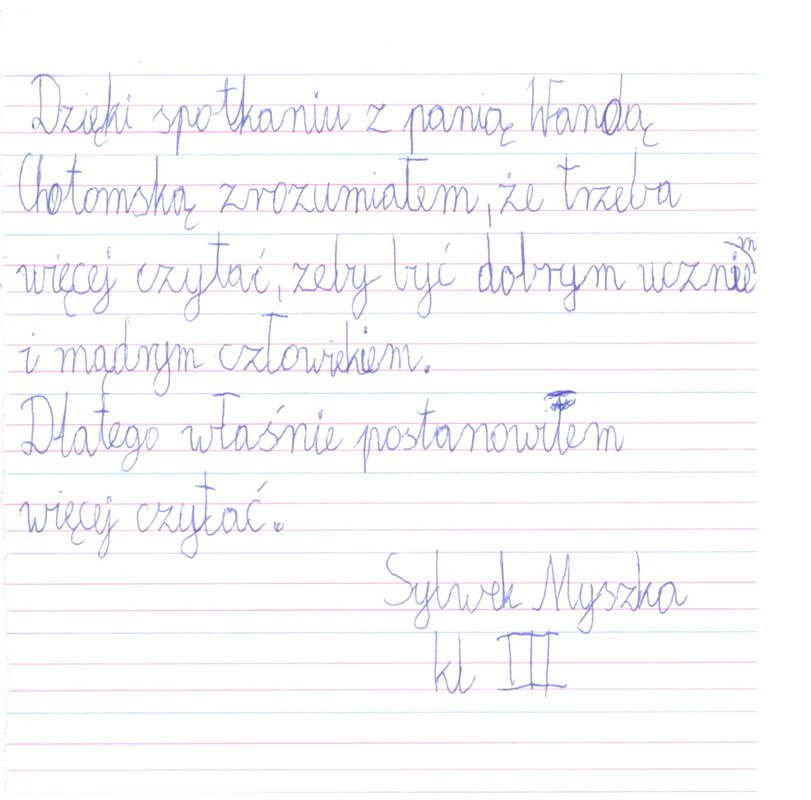 Dzięki spotkaniu z panią Wandą
Chotomską zrozumiałem, że trzeba
więcej czytać, żeby być dobrym uczniem
i mądrym człowiekiem.
Dlatego właśnie postanowiłem
więcej czytać.
Sylwek Myszka
kl III